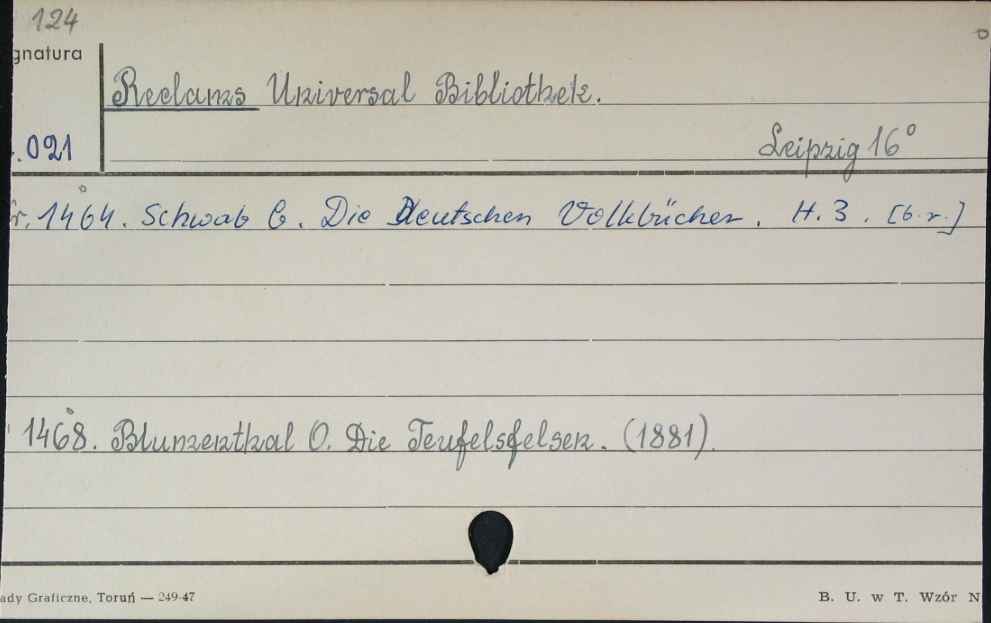 124
gnatura
Reclams Universal Bibliothek.
.021
Leipzig 16°
r. 1464. Schwab G. Die Deutschen Volkbücher. H. 3. [b.r.]
1468. Blumenthal O. Die Teufelsfelsen. (1881).
ady Graficzne, Toruń — 249-47
B. U. w T. Wzór N